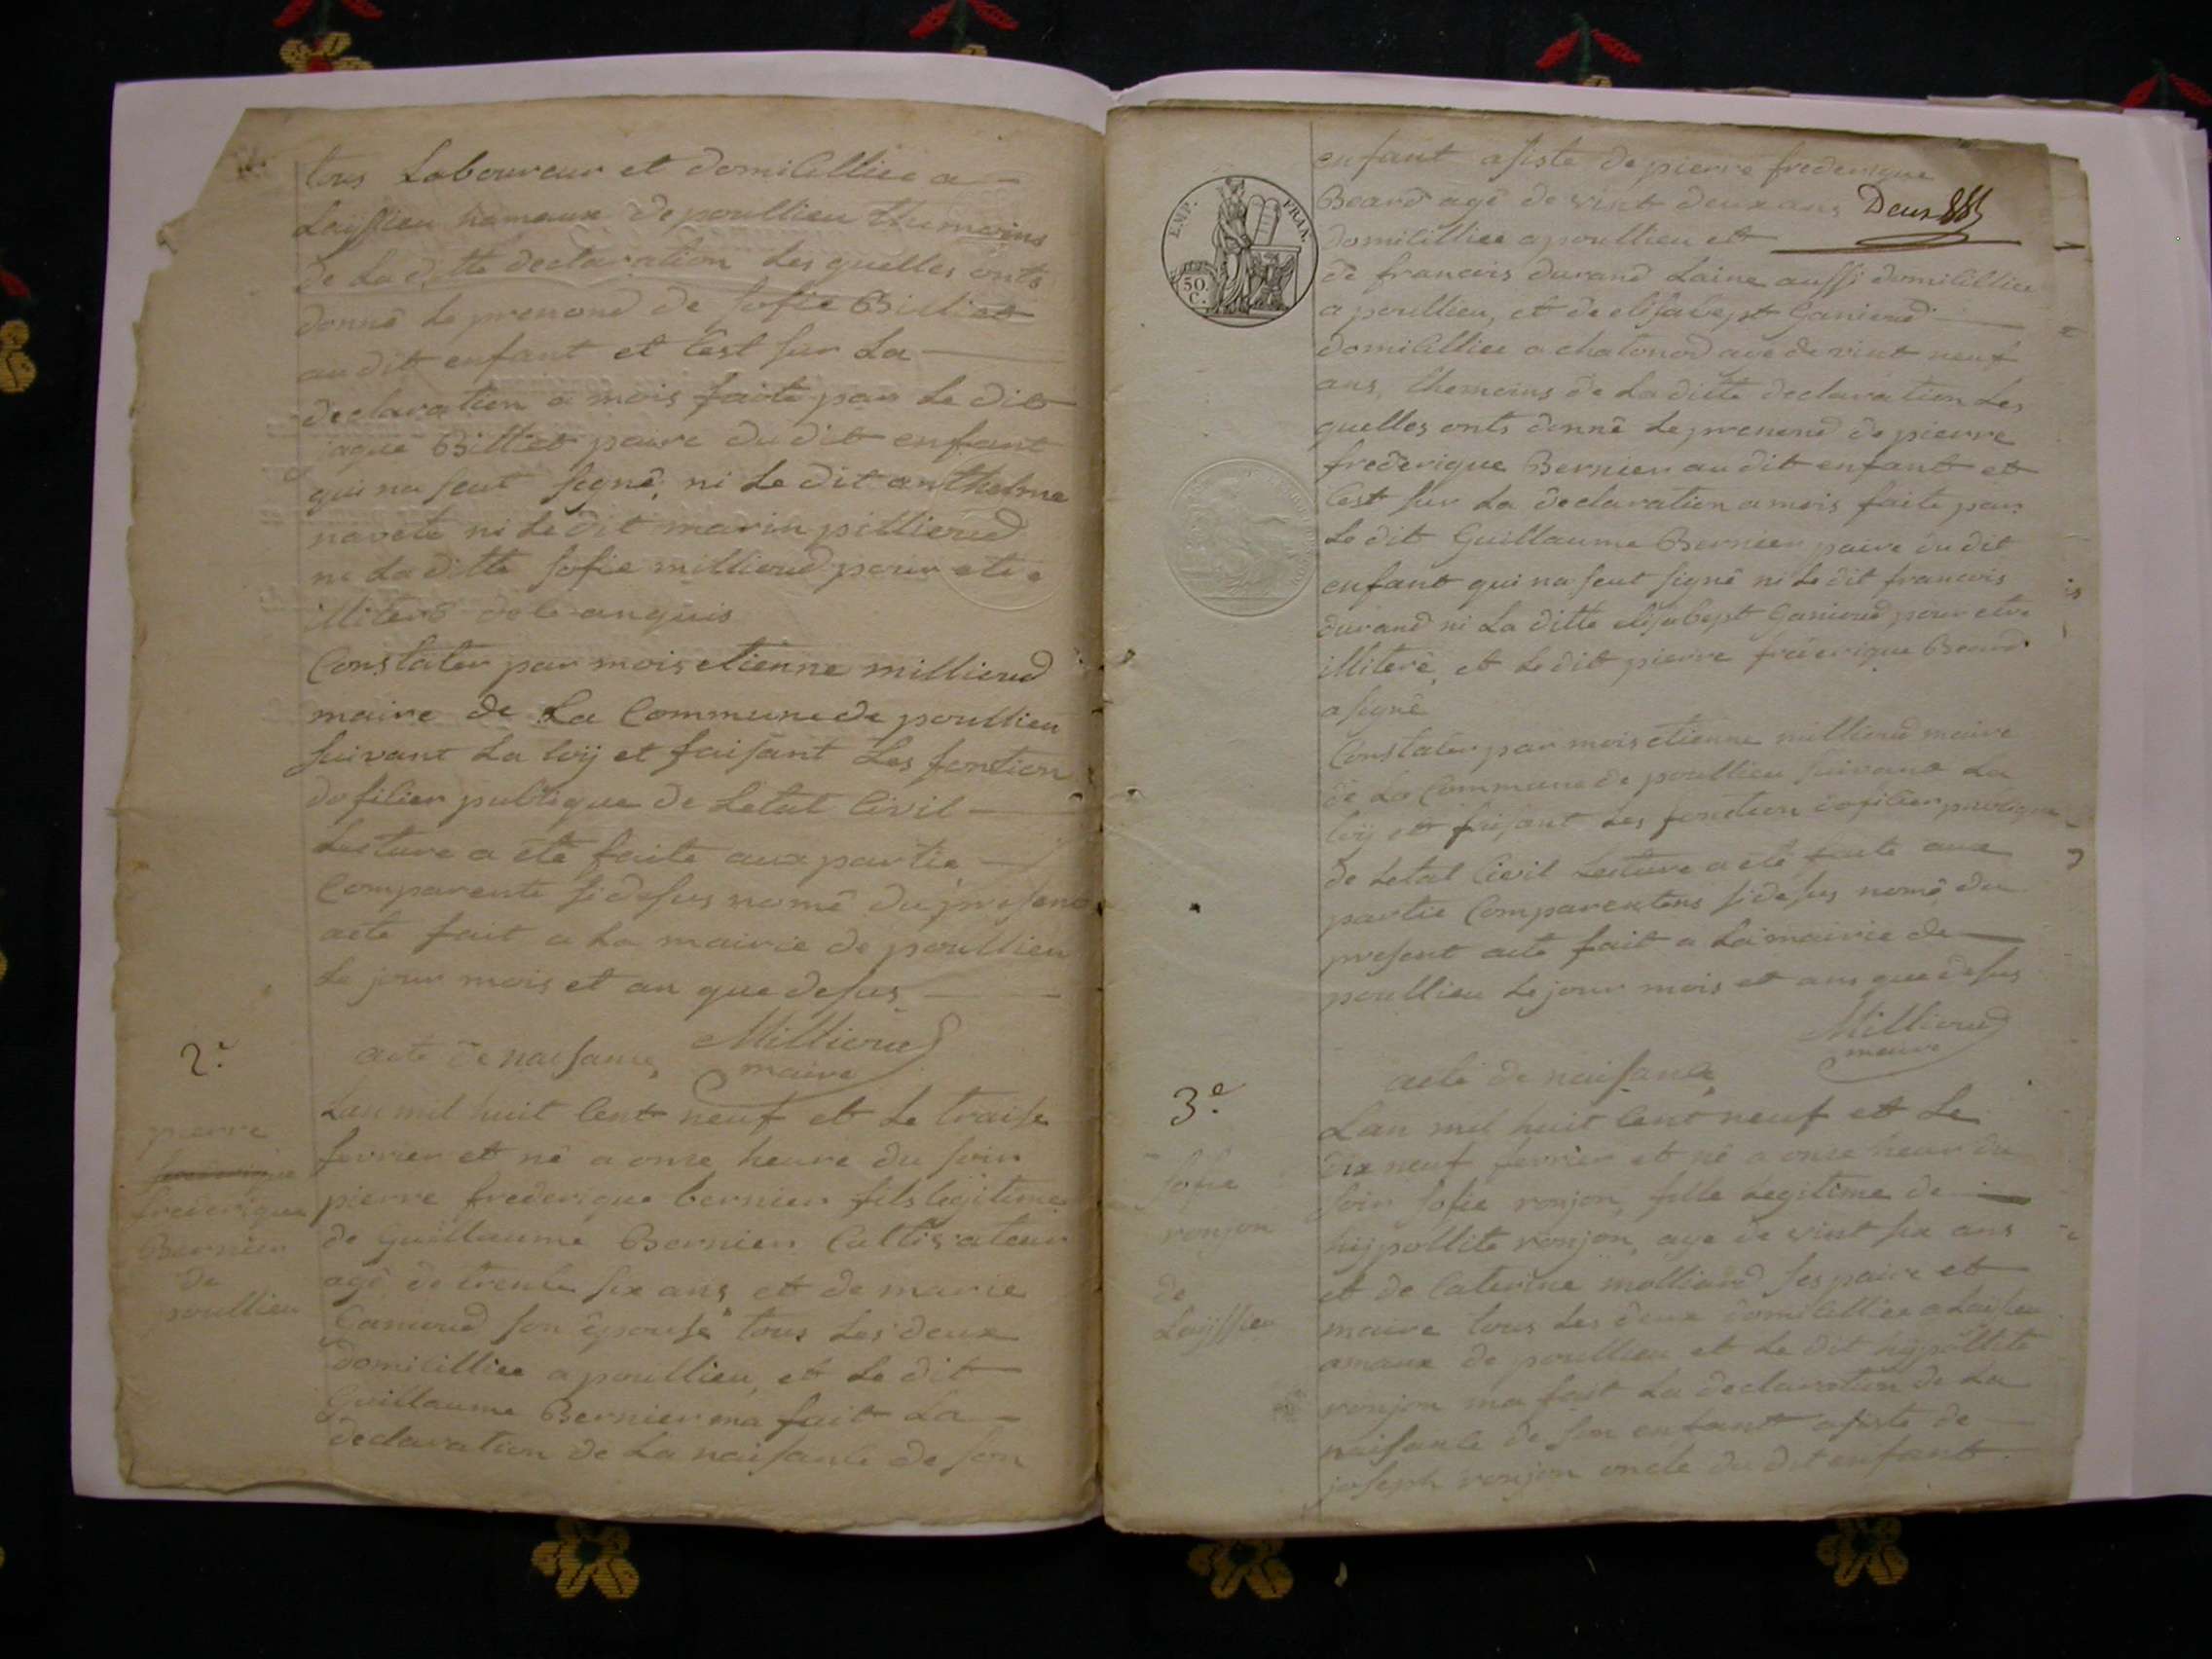 tous Laboureur et domicilliee a
Layssieu hameaux de poullieu themoins
de La ditte declaration Les quelles onts
donné Le prenond de sofie Billiet
au dit enfant et Cest sur La
declaration a mois faite par Le dit
jaque Billiet paire du dit enfant
qui na seut signé, ni Le dit anthelme
navete ni Le dit marin pillioud
ne La ditte sofie millioud pour etre
illiteré de le anquis
Constater par mois etienne millioud
maire de La Commune de poullieu
suivant La loij et faisant Les fontion
dofilier publique de Letat Civil
Lecture a été faite aux partie
Comparente sidesus nomé du present
acte fait a La mairie de poullieu
Le jour mois et an que desus
Millioud
maire
2e
acte de naisance,
pierre
frederique
Bernier
de
poullieu
Lan mil huit Cent neuf et Le traise
fevrier et né a onse heure du soir
pierre frederique bernier fils legitime
de Guillaume Bernier Cultivateur
agé de trente six ans et de marie
Canioud son épouse tous Les deux
domicilliee a poullieu, et Le dit
Guillaume Bernier ma fait La
declaration de La naisance de son
EMP. FRAN.
50.
C.
enfant asiste de pierre frederique
Beard agé de vint deux ans
Deux
domicilliee a poullieu et
de francois durand Laine aussi domicilliee
a poullieu, et de elisabept Ganioud
domicilliee a chatonod age de vint neuf
ans, themoins de La ditte declaration Les
quelles onts donné Le prenond de pierre
frederique Bernier au dit enfant et
Cest sur La declaration a mois faite par
Le dit Guillaume Bernier paire du dit
enfant qui na seut signé ni Le dit francois
durand ni La ditte elisabept Ganioud pour etre
illiteré, et Le dit pierre frederique Beard
a signé
Constater par mois etienne millioud maire
de La Commune de poullieu suivant La
loij et faisant Les fontion dofilier publique
de Letat Civil Lecture a été faite aux
partie Comparentens sidesus nomé du
present acte fait a La mairie de
poullieu Le jour mois et ans que desus
Millioud
maire
3e
acte de naisance
sofie
ronjon
de
Layssieu
Lan mil huit Cent neuf et Le
dix neuf fevrier et né a onse heur du
soir sofie ronjon, fille Legitime de
hijpollite ronjon, age de vint six ans
et de Caterine molliard ses paire et
maire tous Les deux domicilliee a Laijsieu
amaux de poullieu et Le dit hijpollite
ronjon ma fait La declaration de La
naisance de son enfant asiste de
joseph ronjon oncle du dit enfant